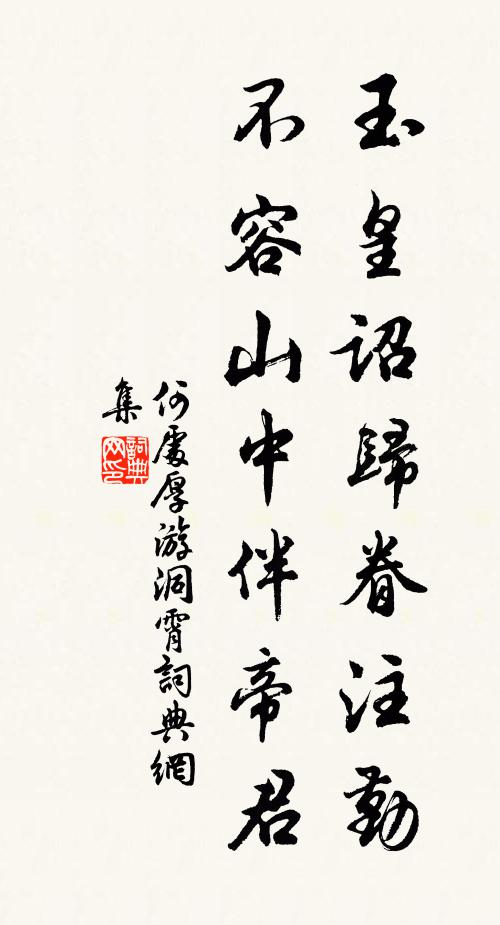 玉皇詔歸眷注勤
不容山中伴帝君
何處厚游洞霄詞典網
集
詞典
网印